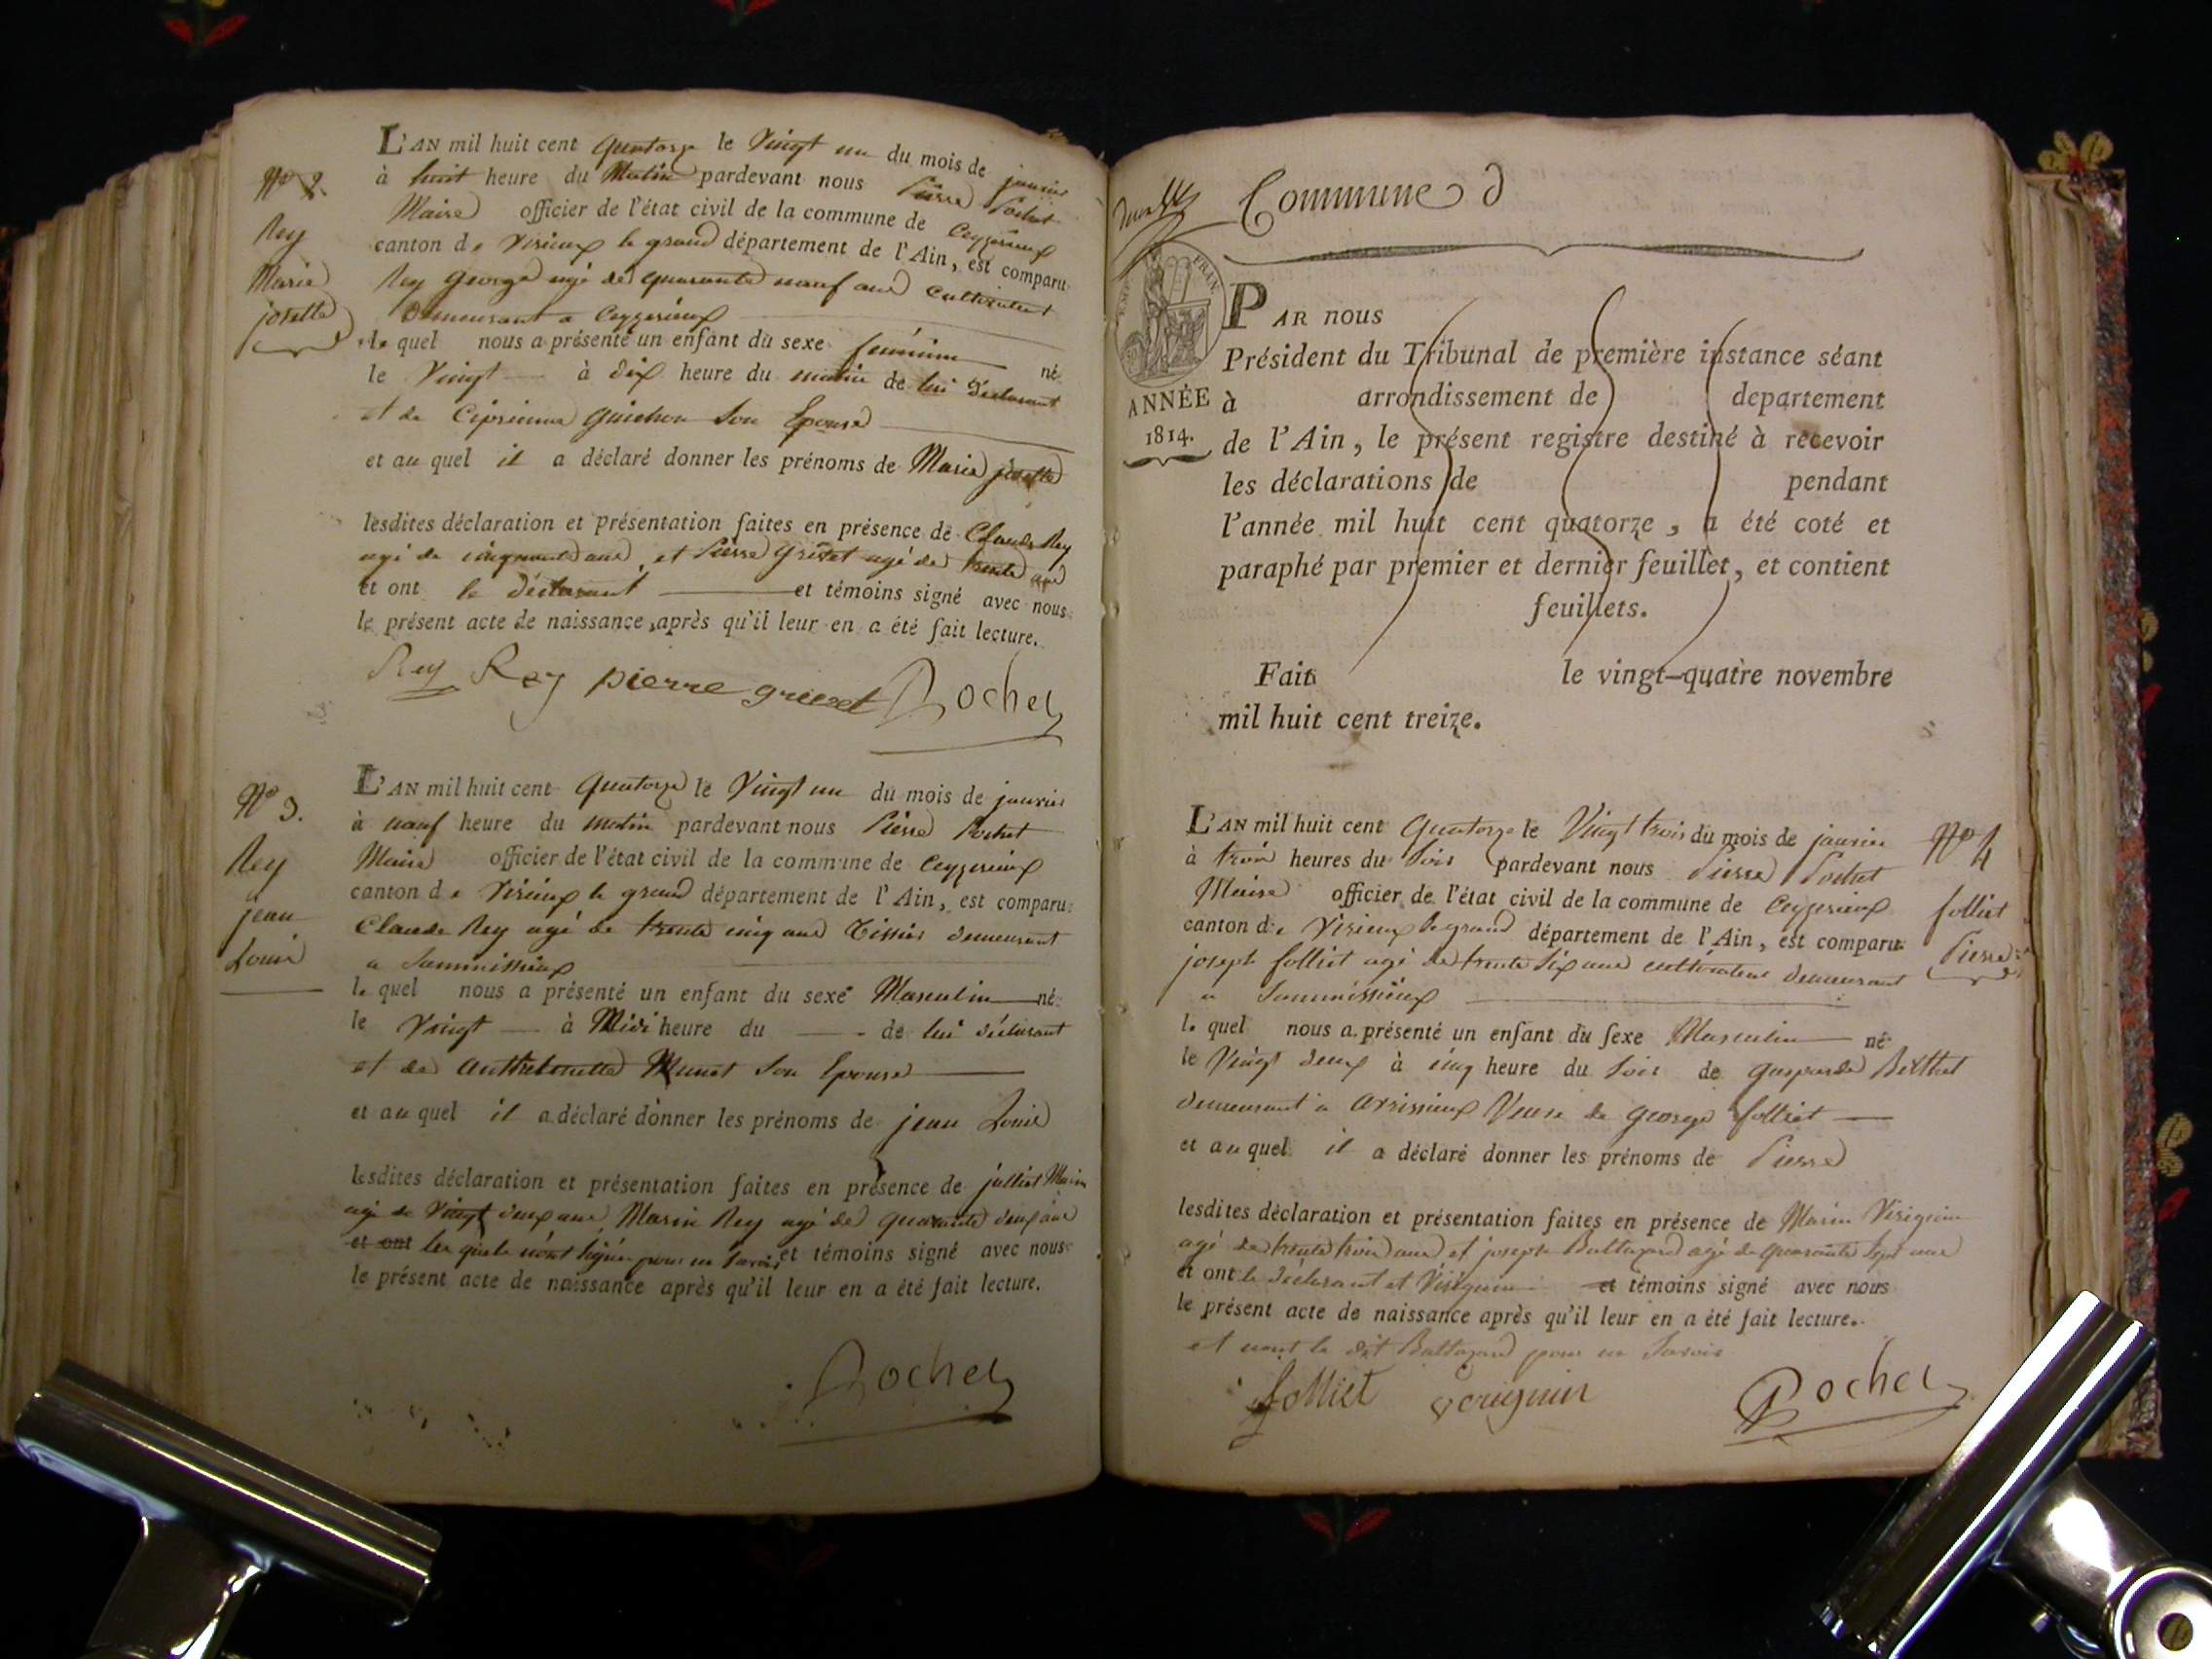 L'AN mil huit cent quatorze le vingt un du mois de janvier
N° 2. à huit heure du Matin pardevant nous Pierre Pochet
Maire officier de l'état civil de la commune de Ceyzerieux
Rey canton de Virieux le grand département de l'Ain, est comparu
Marie Rey George agé de quarante neuf ans cultivateur
josette demeurant a Ceyzerieux
le quel nous a présenté un enfant du sexe feminin né
le Vingt à dix heure du matin de lui déclarant
et de Ciprienne Guichon son Epouse
et au quel il a déclaré donner les prénoms de Marie josette
lesdites déclaration et présentation faites en présence de Claude Rey
agé de cinquante ans, et Pierre Grisset agé de trente ans
et ont le déclarant et témoins signé avec nous
le présent acte de naissance, après qu'il leur en a été fait lecture.
Rey Rey pierre Pochet
L'AN mil huit cent quatorze le Vingt un du mois de janvier
N° 3. à neuf heure du matin pardevant nous Pierre Pochet
Rey Maire officier de l'état civil de la commune de Ceyzerieux
canton de Virieux le grand département de l'Ain, est comparu
jean Claude Rey agé de trente cinq ans Tissier demeurant
Louis a
le quel nous a présenté un enfant du sexe Masculin né
le Vingt à Midi heure du de lui déclarant
et de Munet son Epouse
et au quel il a déclaré donner les prénoms de jean Louis
lesdites déclaration et présentation faites en présence de julliet Marin
agé de Vingt deux ans, Marin Rey agé de quarante deux ans
et ont les quels n'ont signés pour ne savoir et témoins signé avec nous
le présent acte de naissance après qu'il leur en a été fait lecture.
Pochet
Commune d
EMP. FRAN.
PAR nous
Président du Tribunal de première instance séant
ANNÉE à arrondissement de departement
1814. de l'Ain, le présent registre destiné à recevoir
les déclarations de pendant
l'année mil huit cent quatorze, a été coté et
paraphé par premier et dernier feuillet, et contient
feuillets.
Fait le vingt-quatre novembre
mil huit cent treize.
L'AN mil huit cent quatorze le Vingt trois du mois de janvier N° 4
à trois heures du soir pardevant nous Pierre Pochet
Maire officier de l'état civil de la commune de Ceyzerieux folliet
canton de Virieux le grand département de l'Ain, est comparu Pierre
joseph folliet agé de trente six ans cultivateur demeurant
a
le quel nous a présenté un enfant du sexe Masculin né
le Vingt deux à cinq heure du soir de gasparde Berthet
demeurant a Veuve de george folliet
et au quel il a déclaré donner les prénoms de Pierre
lesdites déclaration et présentation faites en présence de Marin Veriguin
agé de trente trois ans et joseph Baltazard agé de quarante sept ans
et ont le déclarant et Veriguin et témoins signé avec nous
le présent acte de naissance après qu'il leur en a été fait lecture.
et nont le dit Baltazard pour ne Savoir
folliet veriguin Pochet